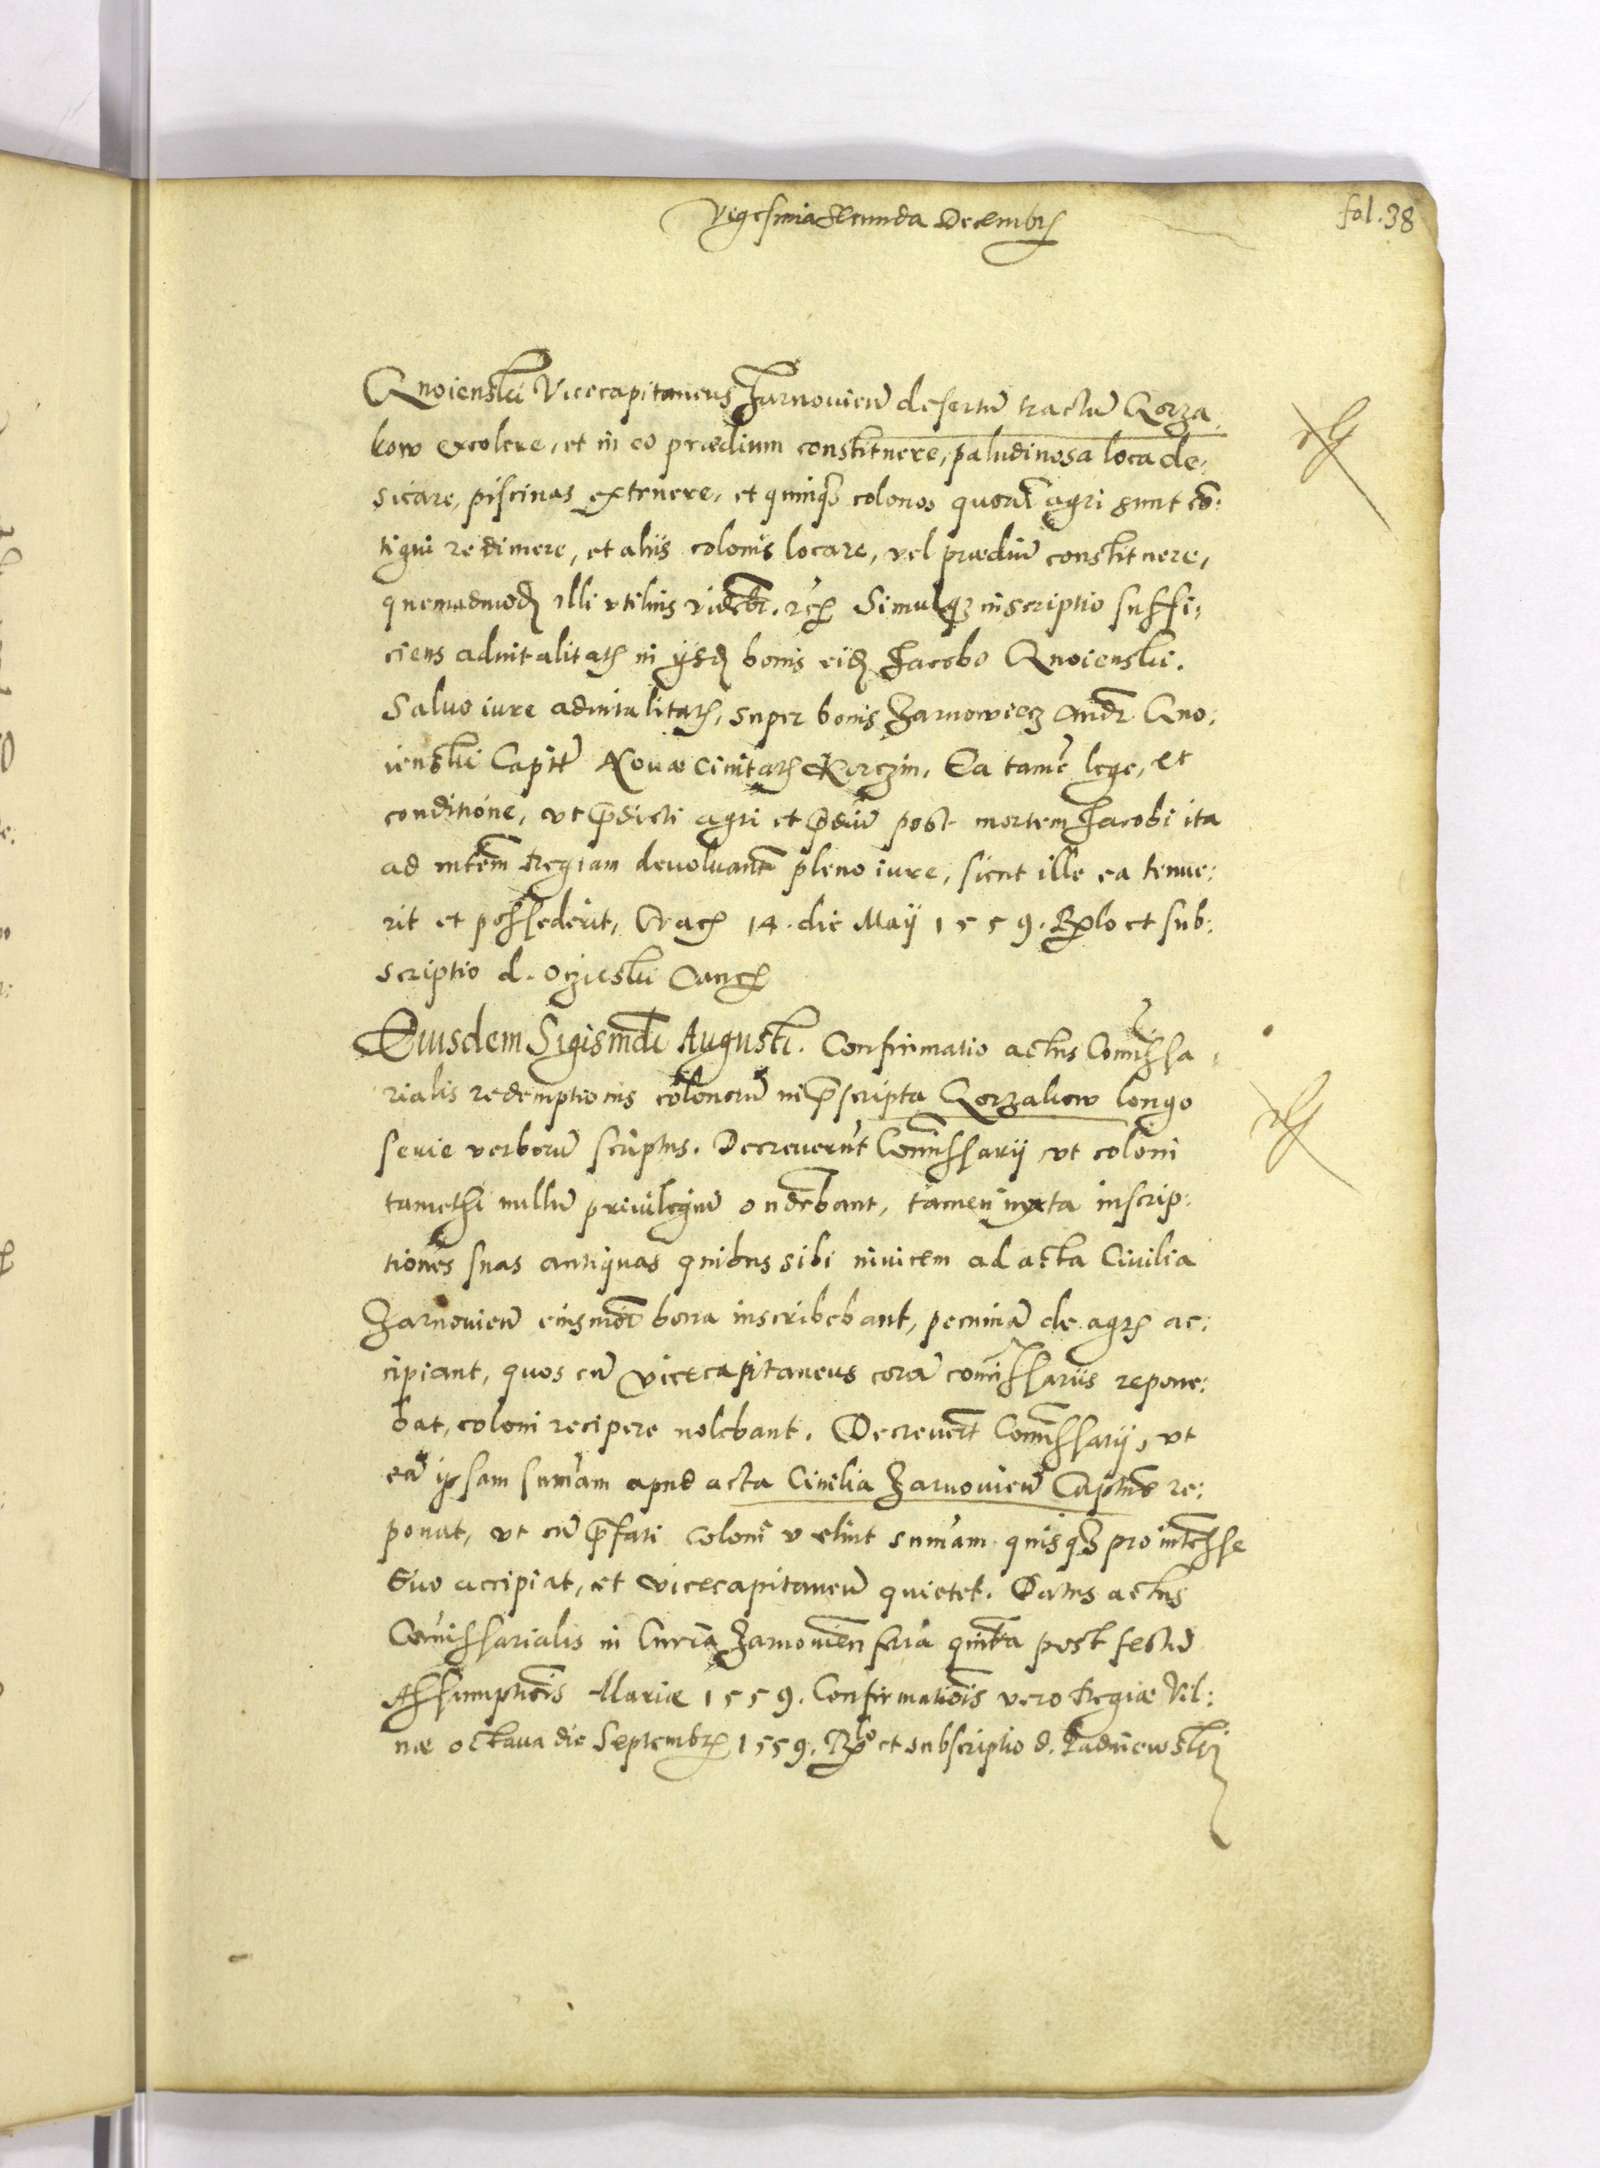 Vigesima Secunda Decembr
fol. 38
Gnoienski Vicecapitaneus Zarnovien̄ desertū tractū Gorza
kow excolere, et in eo prædium constituere, paludinosa loca de:
sicare, piscinas extruere, et quinq3 colonos quorū agri sunt cō:
tigui redimere, et aliis colonis locare, vel prædiū constituere,
quemadmodū illi utilius videbr̄. Simulq3 inscriptio suffi:
ciens advitalitatis in ijsd bonis eid Jacobo Gnoienski.
Salvo iure advitalitatis, super bonis Zarnowiecz Andr̄ Gno:
ienski Capit̄ Novæ Civitatis Korczin. Ea tamē lege, et
conditione, ut p̄dicti agri et p̄diū post mortem Jacobi ita
ad mtēm Regiam devoluant̄ pleno iure, sicut ille ea tenue:
rit et possederit, Crac 14. die Maij 1559. Rplo et sub:
scriptio d. Oczieski Canc
Eiusdem Sigismdi Augusti. Confirmatio actus Comissa:
rialis redemptionis colonorū in p̄scripta Gorzakow longo
serie verborū scriptus. Decreverūt Comissarij ut coloni
tametsi nullū privilegiū ondebant, tamen iuxta inscrip:
tiones suas antiquas quibus sibi invicem ad acta Civilia
Zarnovien̄ eiusmōi bona inscribebant, pecuniā de agris ac:
cipiant, quos cū vicecapitaneus corā comissariis repone:
bat, coloni recipere nolebant. Decreverūt Comissarij, ut
eā ipsam sum̄am apud acta Civilia Zarnovien̄ Captus re:
ponat, ut cū p̄fati coloni velint sum̄am quisq3 pro int̄esse
suo accipiat, et vicecapitaneū quietet. Datus actus
Comissarialis in Curia Zarnovien̄ feria quinta post festū
Assumptiōis Mariæ 1559. Confirmatiōis vero Regiæ Vil:
næ octava die Septembr 1559. Rplo et subscriptio d. Padniewski